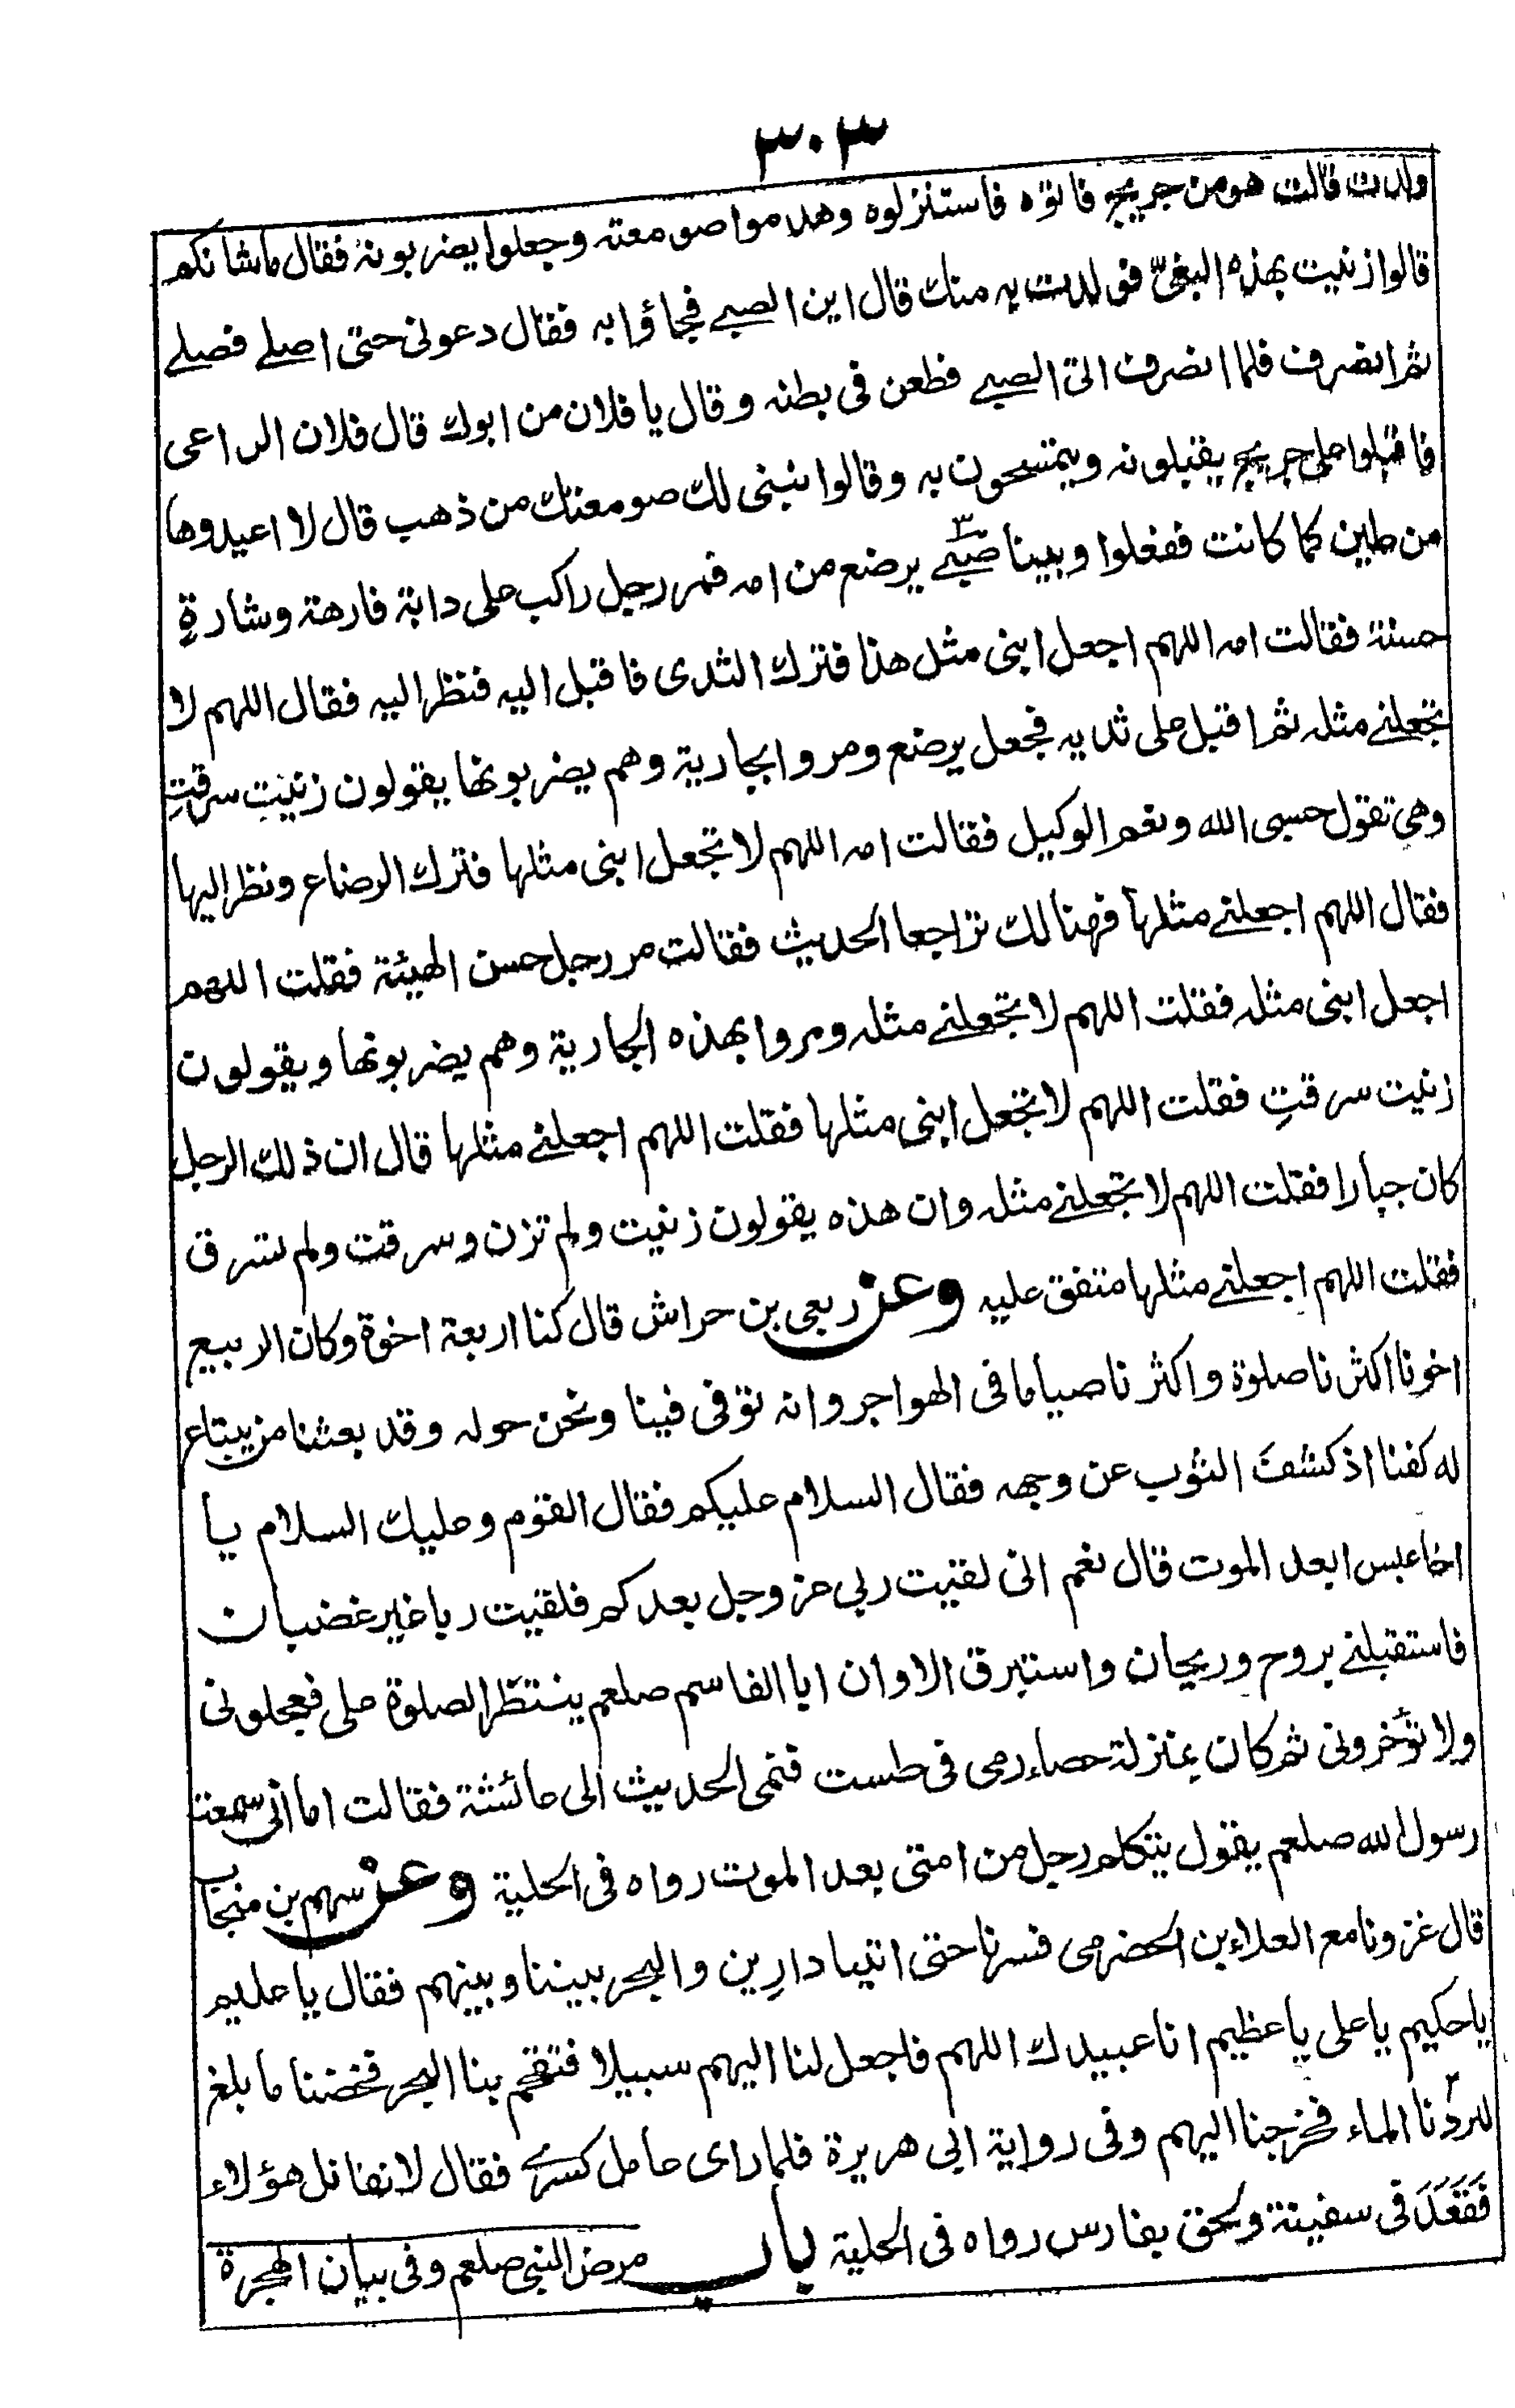 ٣٠٣
ولدت قالت هو من جريج فاتوه فاستنزلوه وهدموا صومعته وجعلوا يضربونه فقال ماشانكم
قالوا زنيت بهذه البغىّ فولدت به منك قال اين الصبے فجاؤا به فقال دعونى حتى اصلے فصلے
ثم انصرف فلما انصرف اتى الصبے فطعن فى بطنه وقال يا فلان من ابوك قال فلان الراعى
فاقبلوا على جريج يقبلونه ويتمسحون به وقالوا نبنى لك صومعتك من ذهب قال لا اعيدوها
من طين كما كانت ففعلوا وبينا صبے يرضع من امه فمر رجل راكب على دابة فارهة وشارةٍ
حسنة فقالت امه اللهم اجعل ابنى مثل هذا فترك الثدى فاقبل اليه فنظر اليه فقال اللهم لا
تجعلنے مثله ثم اقبل على ثديه فجعل يرضع ومروا بجارية وهم يضربونها يقولون زنيتِ سرقتِ
وهى تقول حسبى الله ونعم الوكيل فقالت امه اللهم لا تجعل ابنى مثلها فترك الرضاع ونظر اليها
فقال اللهم اجعلنے مثلها فهنالك تراجعا الحديث فقالت مر رجل حسن الهيئة فقلت اللهم
اجعل ابنى مثله فقلت اللهم لا تجعلنے مثله ومروا بهذه الجارية وهم يضربونها ويقولون
زنيت سرقتِ فقلت اللهم لا تجعل ابنى مثلها فقلت اللهم اجعلنے مثلها قال ان ذلك الرجل
كان جبارا فقلت اللهم لا تجعلنے مثله وان هذه يقولون زنيت ولم تزن وسرقت ولم تسرق
فقلت اللهم اجعلنے مثلها متفق عليه وعن ربعى بن حراش قال كنا اربعة اخوة وكان الربيع
اخونا اكثرنا صلوة واكثرنا صياما فى الهواجر وانه توفى فينا ونحن حوله وقد بعثنا من يبتاع
له كفنا اذ كشف الثوب عن وجهه فقال السلام عليكم فقال القوم وعليك السلام يا
اخا عبس ابعد الموت قال نعم انى لقيت ربى عز وجل بعدكم فلقيت ربا غير غضبان
فاستقبلنے بروح وريحان واستبرق الا وان ابا القاسم صلعم ينتظر الصلوة على فعجلونى
ولا تؤخرونى ثم كان بمنزلة حصاء رمى فى طست فنمى الحديث الى عائشة فقالت اما انى سمعت
رسول الله صلعم يقول يتكلم رجل من امتى بعد الموت رواه فى الحلية وعن سهم بن منجاب
قال غزونا مع العلاء بن الحضرمى فسرنا حتى اتينا دارِين والبحر بيننا وبينهم فقال يا عليم
يا حكيم يا على يا عظيم انا عبيدك اللهم فاجعل لنا اليهم سبيلا فتقحم بنا البحر فخضنا ما بلغ
لبردنا الماء فخرجنا اليهم وفى رواية ابى هريرة فلما راى عامل كسرے فقال لا نقاتل هؤلاء
فَقَعَدَ فى سفينة ولحق بفارس رواه فى الحلية باب مرض النبى صلعم وفى بيان الهجرة